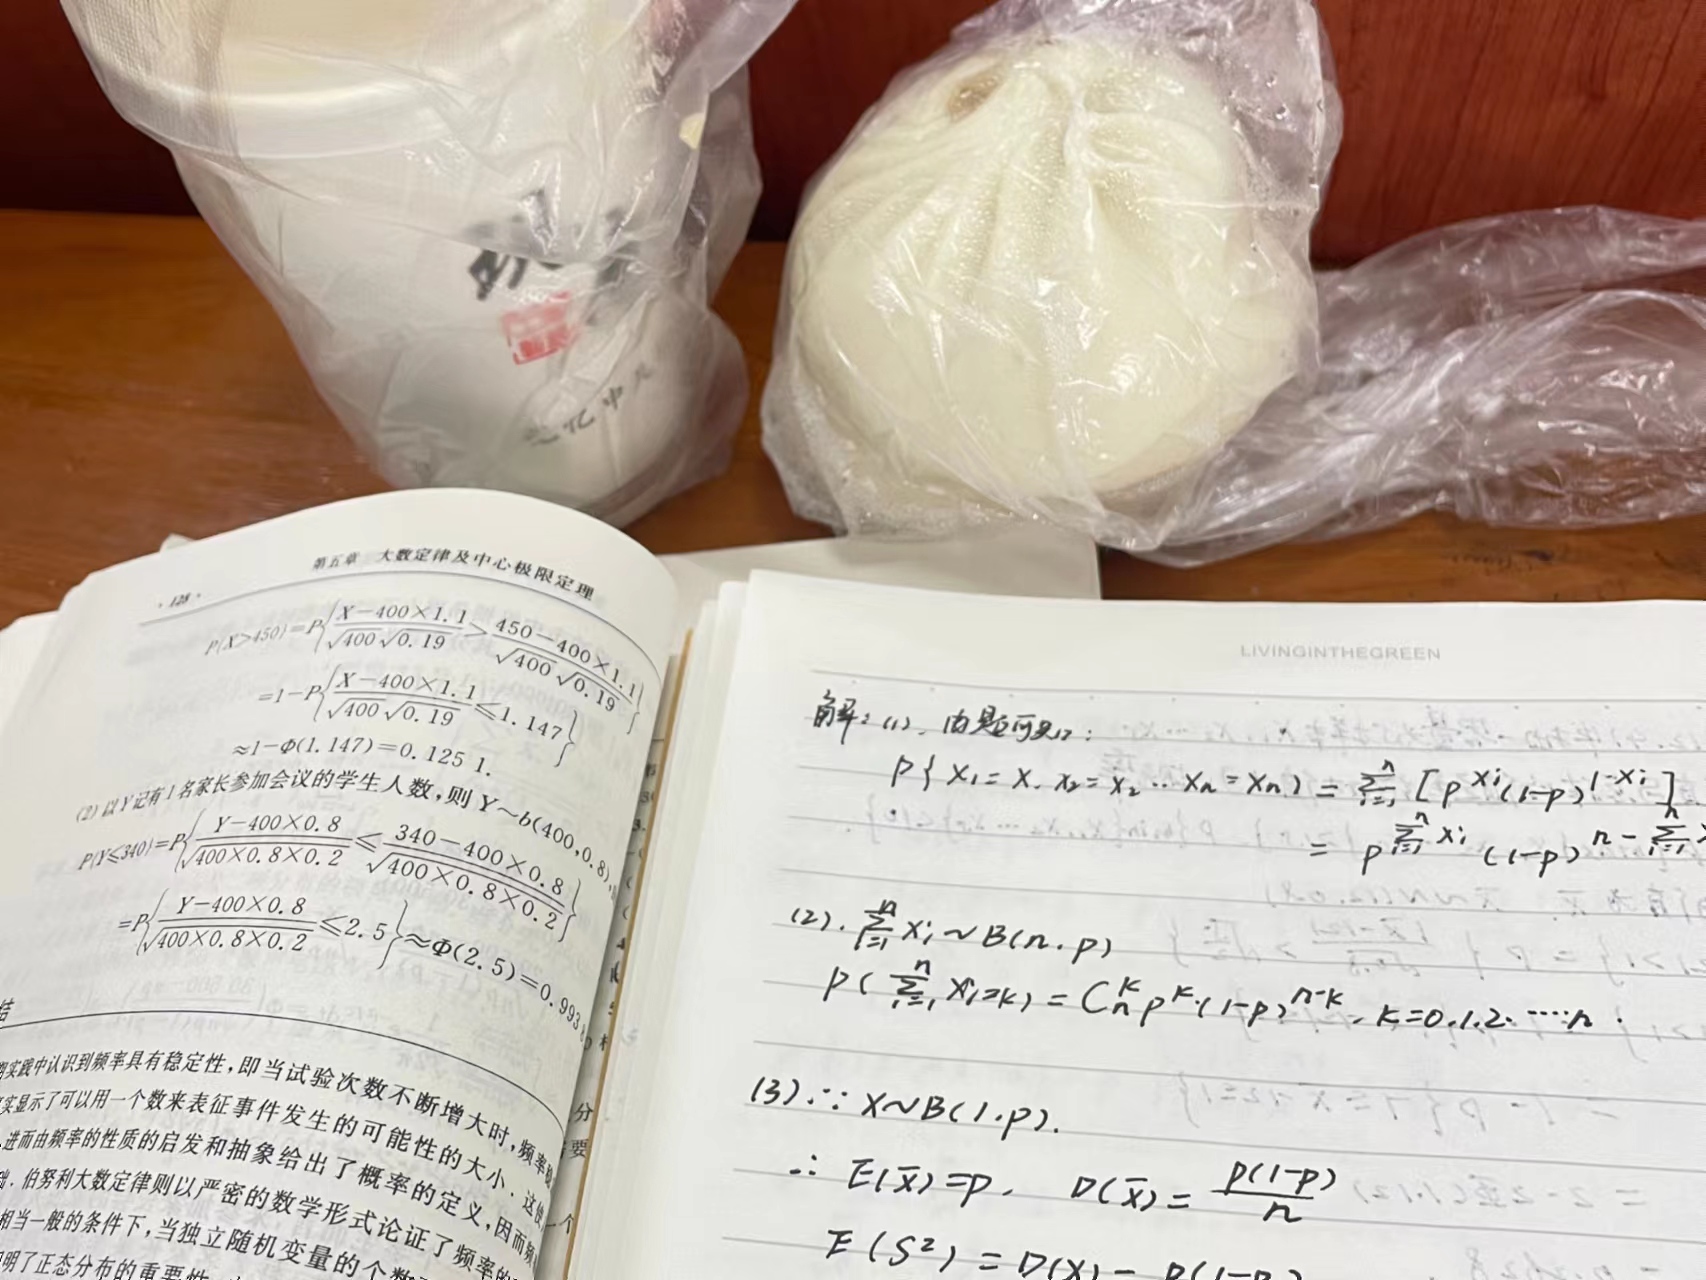 第五章 大数定律及中心极限定理
· 128 ·
P{X>450}=P{(X-400×1.1)/(√400 √0.19)>(450-400×1.1)/(√400 √0.19)}
=1-P{(X-400×1.1)/(√400 √0.19)≤1.147}
≈1-Φ(1.147)=0.125 1.
(2) 以Y记有1名家长参加会议的学生人数,则 Y~b(400,0.8),
P{Y≤340}=P{(Y-400×0.8)/√(400×0.8×0.2)≤(340-400×0.8)/√(400×0.8×0.2)}
=P{(Y-400×0.8)/√(400×0.8×0.2)≤2.5}≈Φ(2.5)=0.993
结
实践中认识到频率具有稳定性,即当试验次数不断增大时,频率
实显示了可以用一个数来表征事件发生的可能性的大小.这使
进而由频率的性质的启发和抽象给出了概率的定义,因而频
伯努利大数定律则以严密的数学形式论证了频率的
相当一般的条件下,当独立随机变量的个数
明了正态分布的重要性
分
要
个
LIVINGINTHEGREEN
解:(1). 由题可知:
P{X₁=x, x₂=x₂…Xn=xn}=∑ⁿᵢ₌₁[p^xi(1-p)^(1-xi)]
=p^(∑ⁿᵢ₌₁xi)(1-p)^(n-∑ⁿᵢ₌₁x
(2). ∑ⁿᵢ₌₁xi~B(n.p)
P(∑ⁿᵢ₌₁xi=k)=Cₙᵏpᵏ·(1-p)ⁿ⁻ᵏ, k=0.1.2.….n.
(3). ∵ X~B(1.p).
∴ E(X̄)=p. D(X̄)=p(1-p)/n
E(S²)=D(X)=p(1-p)